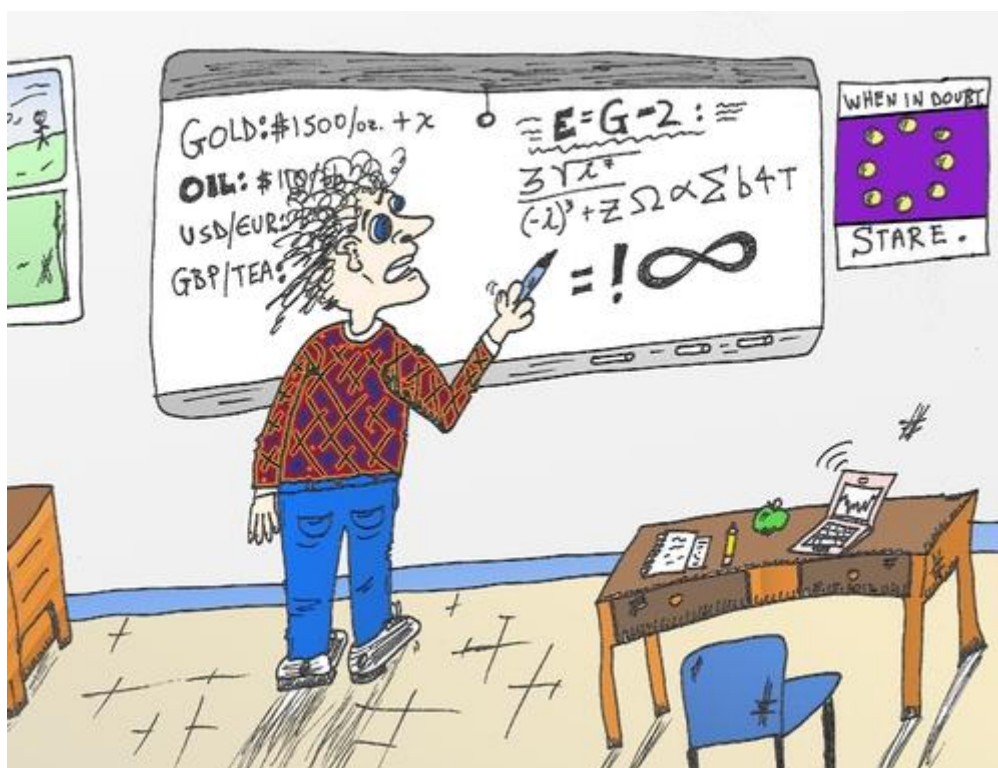 GOLD: $1500/oz. + x
OIL: $110/
USD/EUR:
GBP/TEA:
≈ E=G-2: ≈
3√i⁷
(-i)³ + Z Ω ∝ Σ b4T
= ! ∞
WHEN IN DOUBT
STARE.